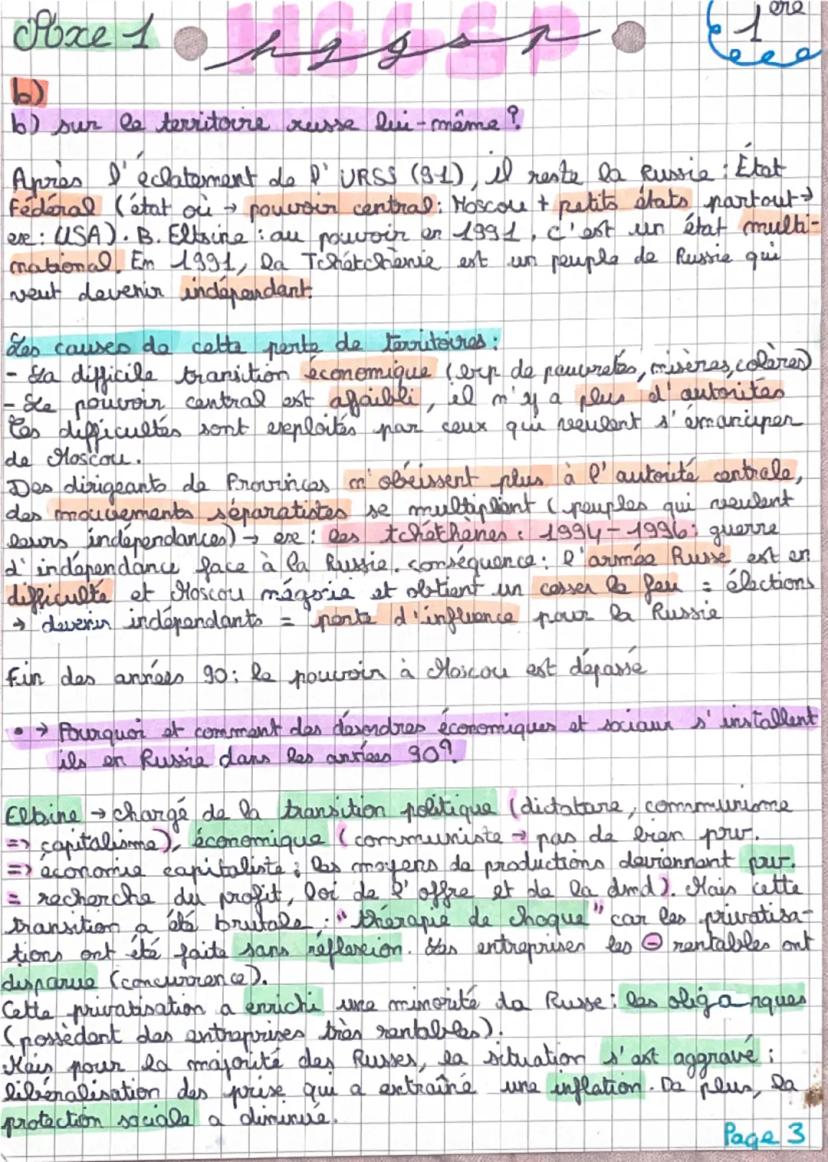 Axe 1
HGGSP
hggsp
1ère
b)
b) sur le territoire russe lui-même ?
Après l'éclatement de l'URSS (91), il reste la Russie : État
Fédéral (état où → pouvoir central : Moscou + petits états partout →
ex : USA). B. Eltsine : au pouvoir en 1991, c'est un état multi-
national. En 1991, la Tchétchénie est un peuple de Russie qui
veut devenir indépendant.
Les causes de cette perte de territoires :
- La difficile transition économique (exp de pauvretés, misères, colères)
- Le pouvoir central est affaibli, il n'y a plus d'autorités
Ces difficultés sont exploités par ceux qui veulent s'émanciper
de Moscou.
Des dirigeants de Provinces n'obéissent plus à l'autorité centrale,
des mouvements séparatistes se multiplient (peuples qui veulent
leurs indépendances) → ex : les tchéthènes : 1994-1996 : guerre
d'indépendance face à la Russie. conséquence : l'armée Russe est en
difficulté et Moscou négocie et obtient un cesser le feu = élections
→ devenir indépendants = perte d'influence pour la Russie
Fin des années 90 : le pouvoir à Moscou est dépassé
• → Pourquoi et comment des désordres économiques et sociaux s'installent
ils en Russie dans les années 90 ?
Eltsine → chargé de la transition politique (dictature, communisme
=> capitalisme), économique (communiste → pas de bien priv.
=> économie capitaliste : les moyens de productions deviennent priv.
= recherche du profit, loi de l'offre et de la dmd). Mais cette
transition a été brutale : "thérapie de choque" car les privatisa-
tions ont été faite sans réflexion. Les entreprises les ⊖ rentables ont
disparue (concurrence).
Cette privatisation a enrichi une minorité da Russe : les oligarques
(possèdent des entreprises très rentables).
Mais pour la majorité des Russes, la situation s'est aggravé :
libéralisation des prise qui a entraîné une inflation. De plus, la
protection sociale a diminué.
Page 3